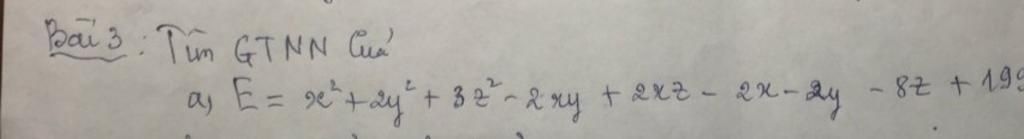 Bài 3 : Tìm GTNN Của
a, E = x² + 2y² + 3z² - 2xy + 2xz - 2x - 2y - 8z + 199